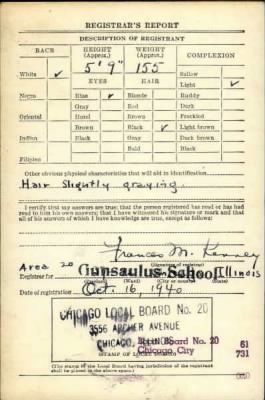 REGISTRAR'S REPORT
DESCRIPTION OF REGISTRANT
RACE HEIGHT (Approx.) WEIGHT (Approx.) COMPLEXION
5' 9" 155
White ✓ EYES HAIR Sallow
Light ✓
Negro Blue ✓ Blonde Ruddy
Gray Red Dark
Oriental Hazel Brown Freckled
Brown Black ✓ Light brown
Indian Black Gray Dark brown
Bald Black
Filipino
Other obvious physical characteristics that will aid in identification
Hair Slightly graying.
I certify that my answers are true; that the person registered has read or has
had read to him his own answers; that I have witnessed his signature or mark and that
all of his answers of which I have knowledge are true, except as follows:
Frances M.
(Signature of registrar)
Area 20 Gunsaulus School Illinois
Registrar for
(Ward) (City or county)
Date of registration Oct. 16, 1940
CHICAGO LOCAL BOARD No. 20
3556 ARCHER AVENUE
CHICAGO, ILLINOIS
Board No. 20 61
Chicago City 731
STAMP OF LOCAL BOARD
(The stamp of the Local Board having jurisdiction of the registrant
shall be placed in the above space.)